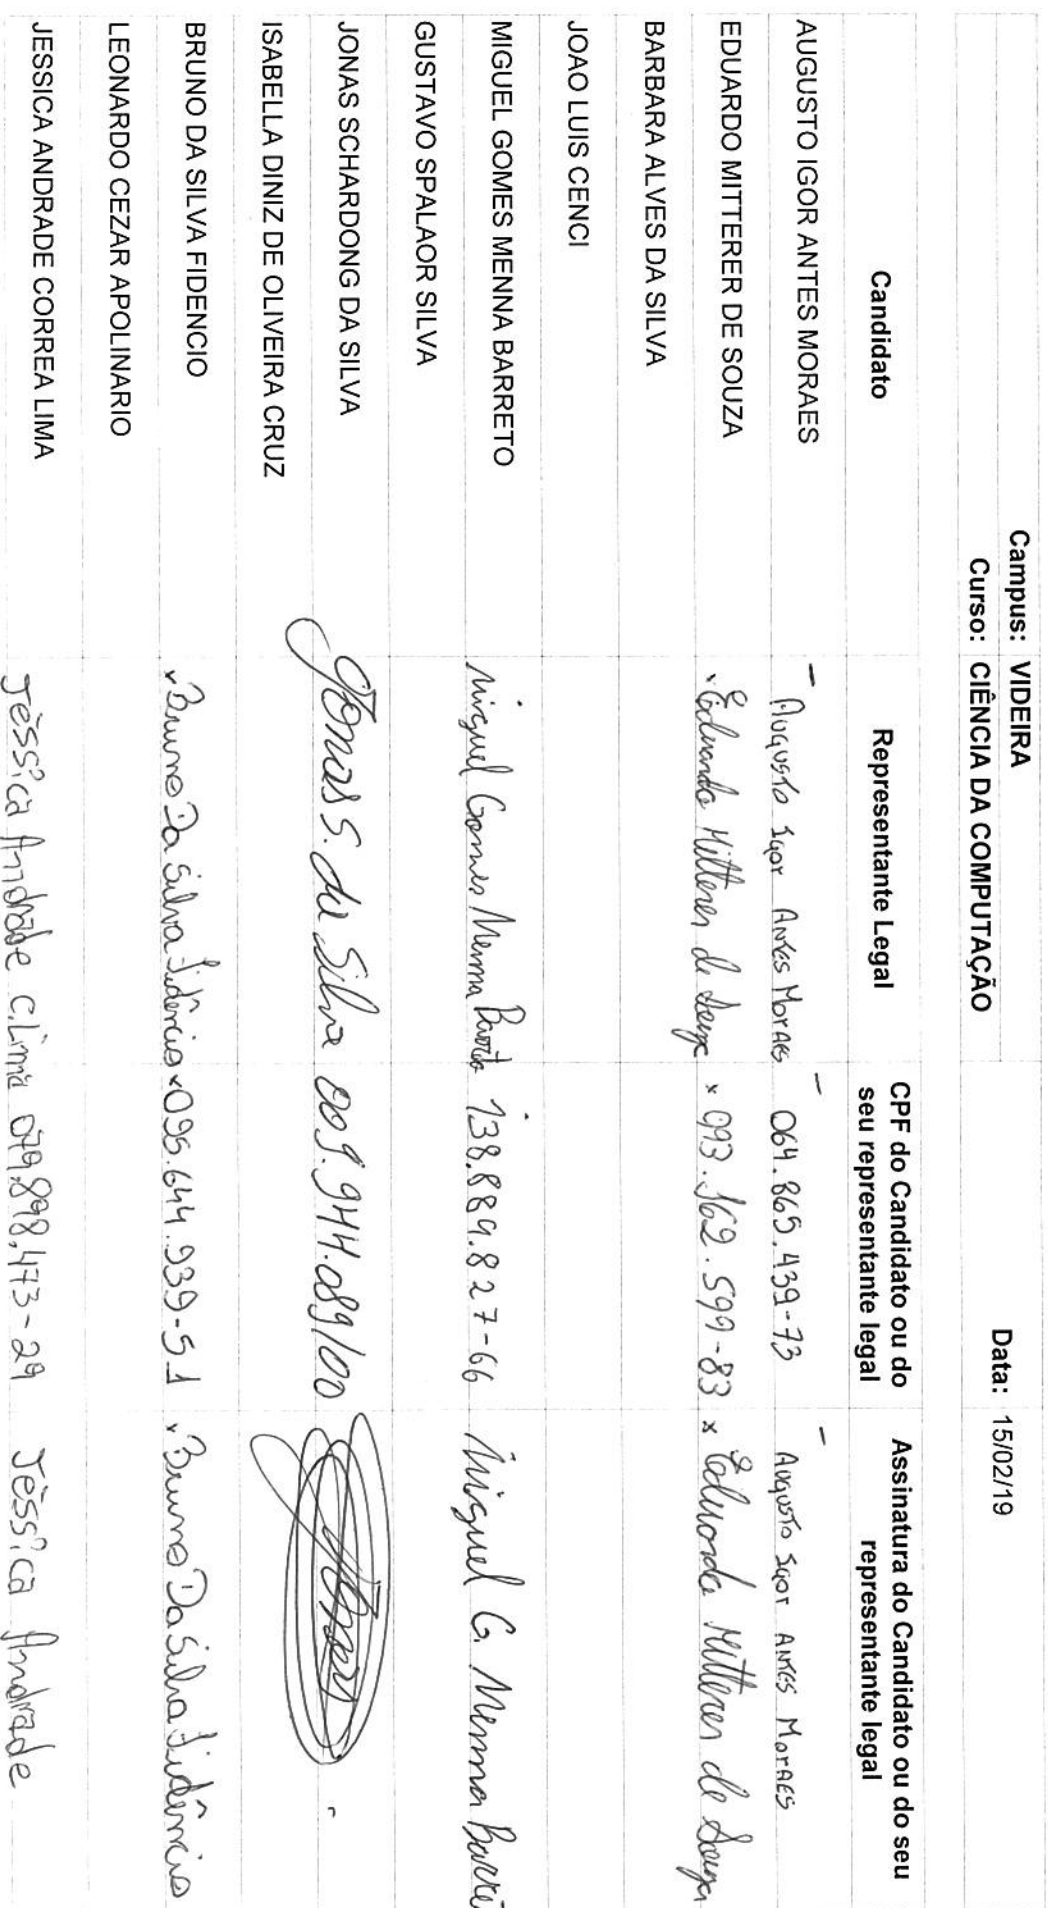 Campus: VIDEIRA Data: 15/02/19
Curso: CIÊNCIA DA COMPUTAÇÃO
Candidato Representante Legal CPF do Candidato ou do seu representante legal Assinatura do Candidato ou do seu representante legal
AUGUSTO IGOR ANTES MORAES - Augusto Igor Antes Moraes - 064.865.439-73 - Augusto Igor Antes Moraes
EDUARDO MITTERER DE SOUZA x Eduardo Mitterer de Souza x 093.162.599-83 x Eduardo Mitterer de Souza
BARBARA ALVES DA SILVA
JOAO LUIS CENCI
MIGUEL GOMES MENNA BARRETO Miguel Gomes Menna Barreto 138.889.827-66 Miguel G. Menna Barre
GUSTAVO SPALAOR SILVA
JONAS SCHARDONG DA SILVA Jonas S. da Silva 009.944.089/00 Jonas
ISABELLA DINIZ DE OLIVEIRA CRUZ
BRUNO DA SILVA FIDENCIO x Bruno Da Silva Fidêncio x 095.644.939-51 x Bruno Da Silva Fidêncio
LEONARDO CEZAR APOLINARIO
JESSICA ANDRADE CORREA LIMA Jéssica Andrade C. Lima 079.898.473-29 Jéssica Andrade